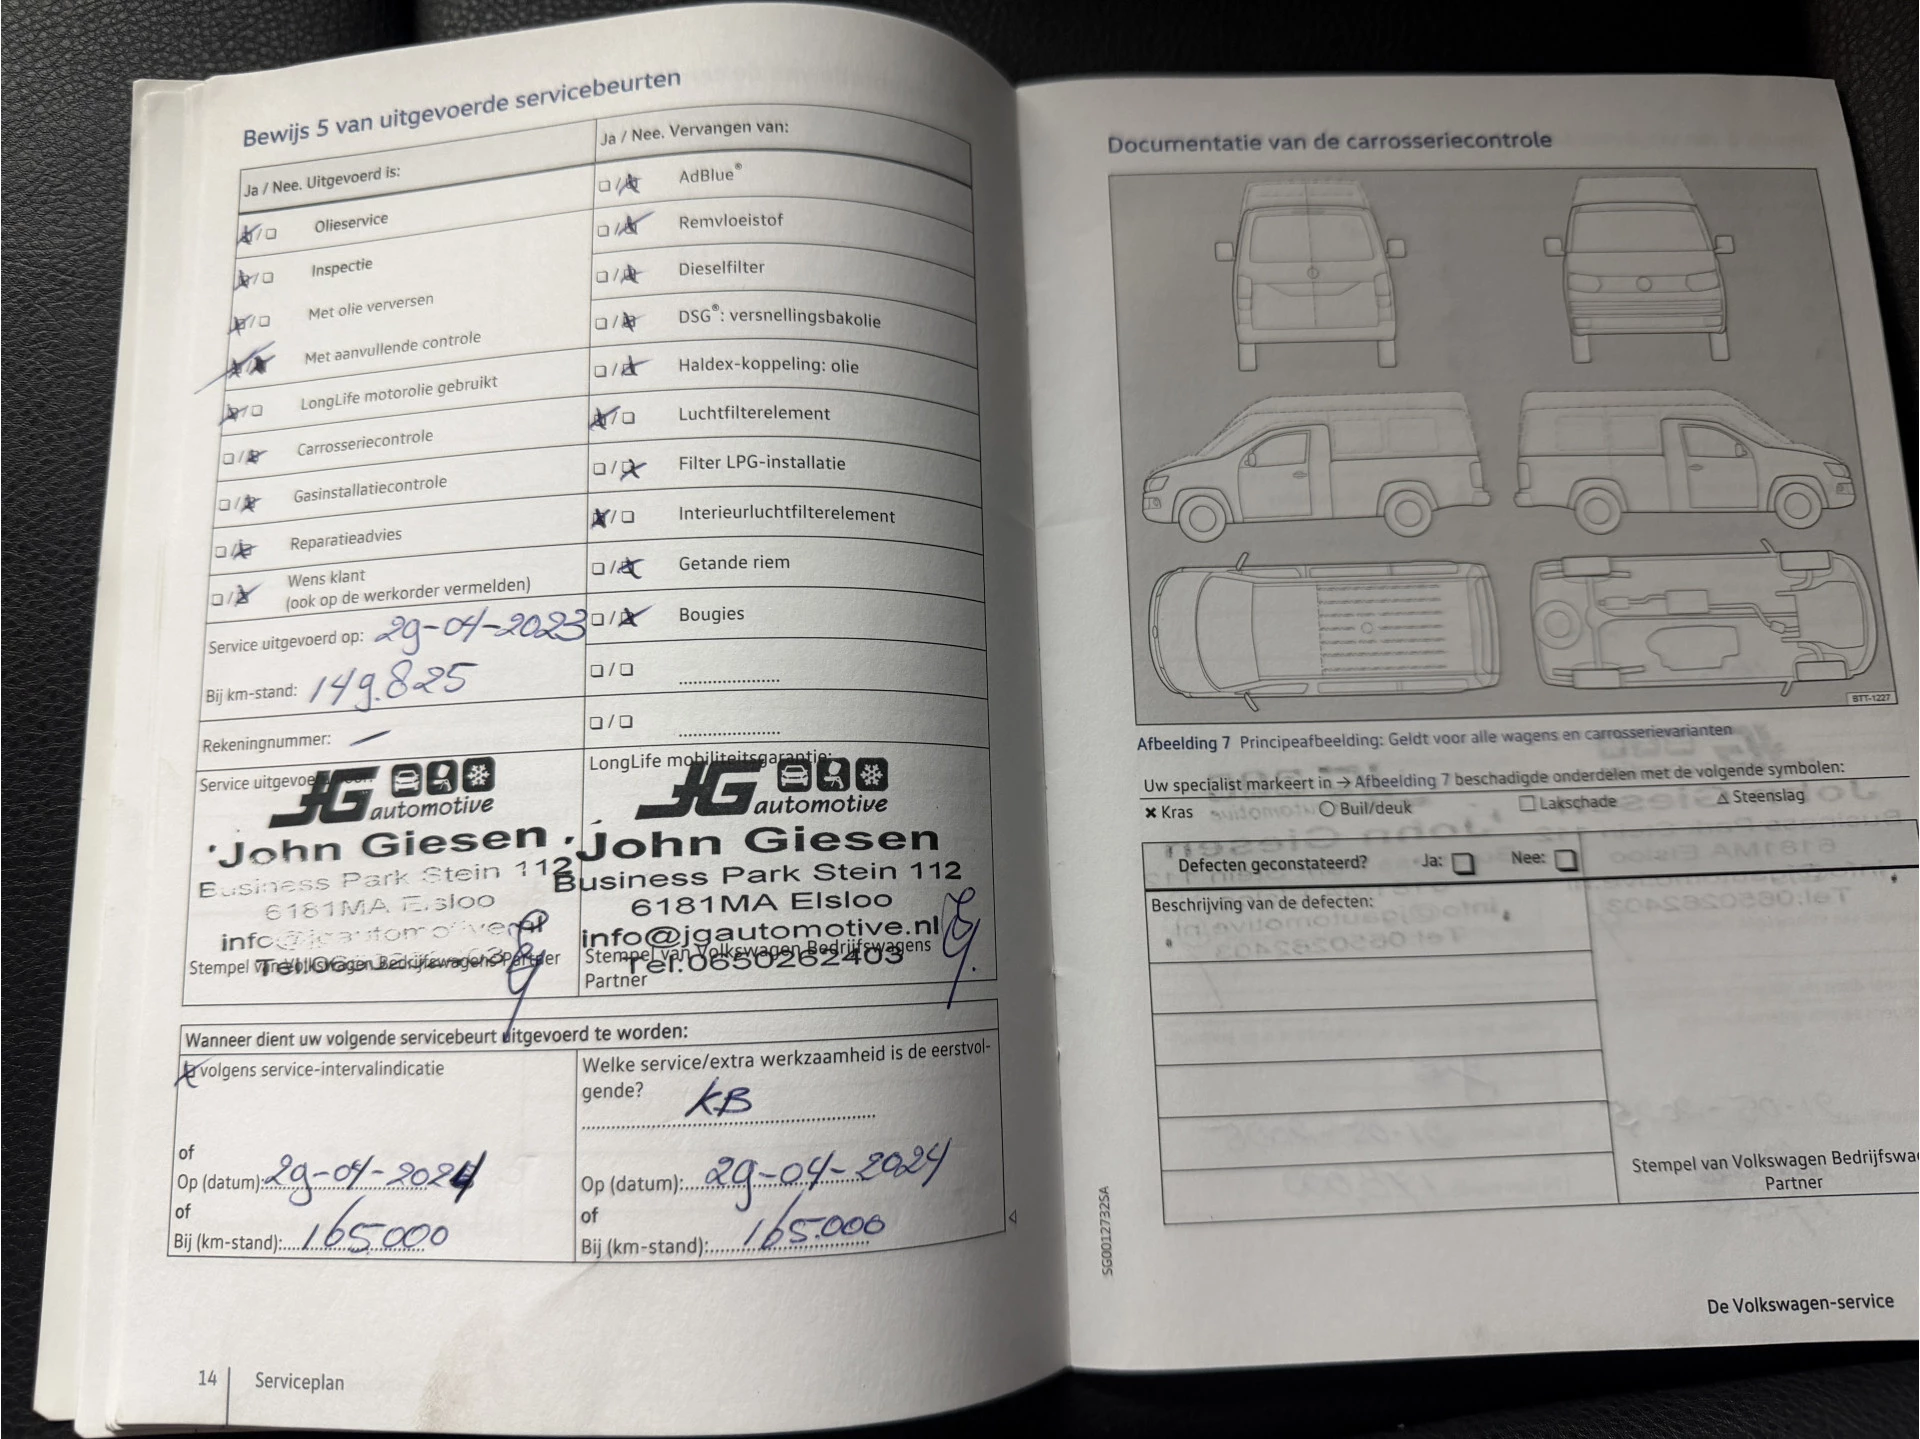 Bewijs 5 van uitgevoerde servicebeurten
Ja / Nee. Uitgevoerd is:
Olieservice
Inspectie
Met olie verversen
Met aanvullende controle
LongLife motorolie gebruikt
Carrosseriecontrole
Gasinstallatiecontrole
Reparatieadvies
Wens klant
(ook op de werkorder vermelden)
Service uitgevoerd op: 29-04-2023
Bij km-stand: 149.825
Rekeningnummer: —
Service uitgevoerd
JG
automotive
John Giesen
Business Park Stein 112
6181MA Elsloo
info@jgautomotive.nl
Stempel van Volkswagen Bedrijfswagens Partner
Ja / Nee. Vervangen van:
AdBlue®
Remvloeistof
Dieselfilter
DSG®: versnellingsbakolie
Haldex-koppeling: olie
Luchtfilterelement
Filter LPG-installatie
Interieurluchtfilterelement
Getande riem
Bougies
LongLife mobiliteitsgarantie:
JG
automotive
John Giesen
Business Park Stein 112
6181MA Elsloo
info@jgautomotive.nl
Stempel van Volkswagen Bedrijfswagens
Tel.0650262403
Partner
Wanneer dient uw volgende servicebeurt uitgevoerd te worden:
volgens service-intervalindicatie
of
Op (datum): 29-04-2024
of
Bij (km-stand): 165.000
Welke service/extra werkzaamheid is de eerstvol-
gende?
KB
Op (datum): 29-04-2024
of
Bij (km-stand): 165.000
14 Serviceplan
Documentatie van de carrosseriecontrole
BTT-1227
Afbeelding 7 Principeafbeelding: Geldt voor alle wagens en carrosserievarianten
Uw specialist markeert in → Afbeelding 7 beschadigde onderdelen met de volgende symbolen:
Kras Buil/deuk Lakschade Steenslag
Defecten geconstateerd? Ja: Nee:
Beschrijving van de defecten:
Stempel van Volkswagen Bedrijfswa
Partner
SG0012732SA
De Volkswagen-service